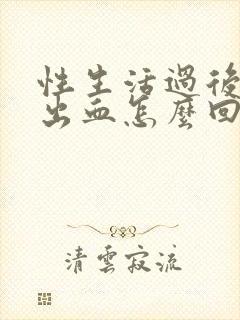 性生活過後
出血怎麼回
清雲寂流